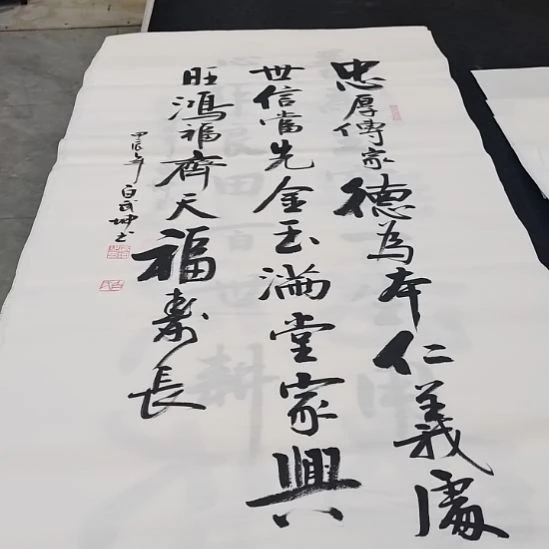 忠厚傳家德為本仁義處
世信當先金玉滿堂家興
旺鴻福齊天福壽長
甲辰年白武坤书